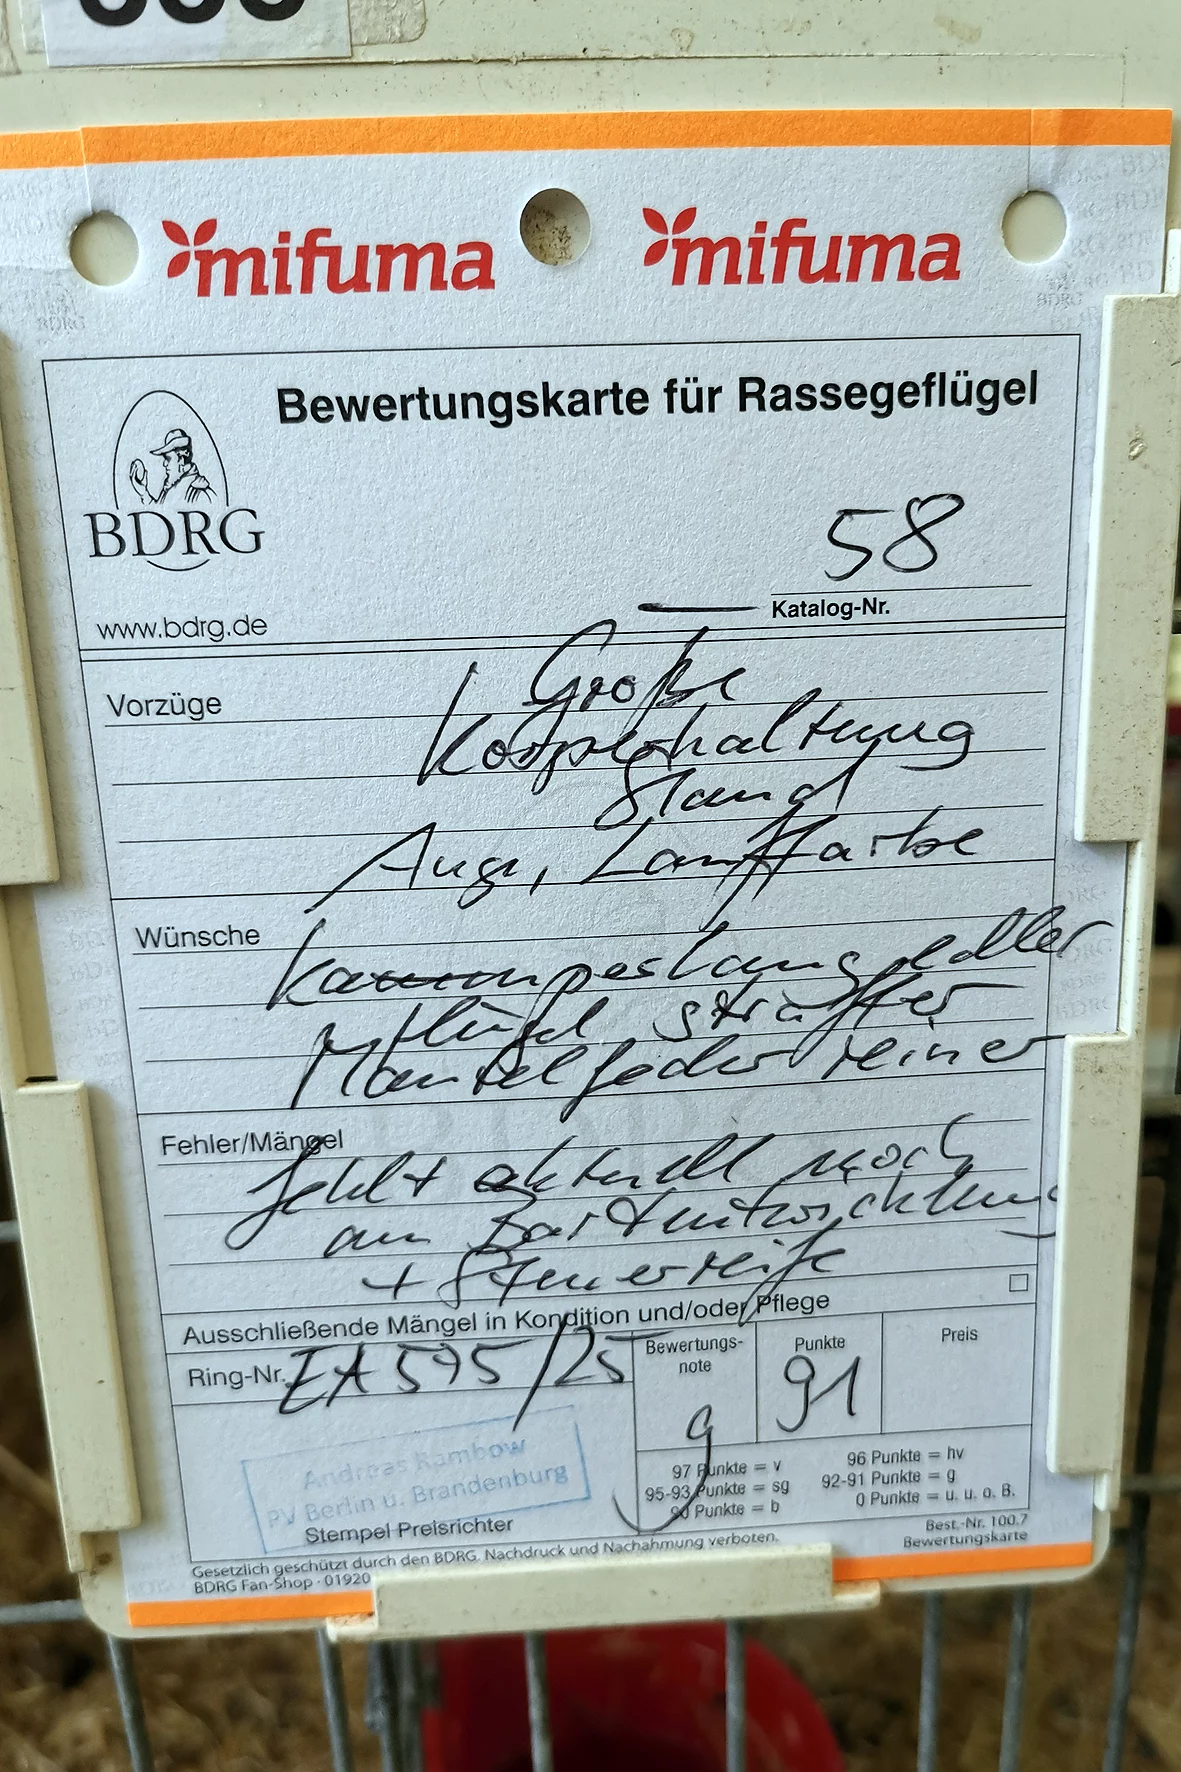 mifuma mifuma
Bewertungskarte für Rassegeflügel
BDRG
58
Katalog-Nr.
www.bdrg.de
Vorzüge
Größe
Körperhaltung
Stand
Auge, Lauffarbe
Wünsche
edler
Flügel straffer
Mantelgefieder reiner
Fehler/Mängel
fehlt aktuell noch
an Bartentwicklung
+ Steuerreife
Ausschließende Mängel in Kondition und/oder Pflege
Ring-Nr. EA 595/25
Bewertungs-
note
g
Punkte
91
Preis
Andreas Rambow
PV Berlin u. Brandenburg
Stempel Preisrichter
97 Punkte = v 96 Punkte = hv
95-93 Punkte = sg 92-91 Punkte = g
90 Punkte = b 0 Punkte = u. u. o. B.
Gesetzlich geschützt durch den BDRG. Nachdruck und Nachahmung verboten.
BDRG Fan-Shop · 01920
Best.-Nr. 100.7
Bewertungskarte